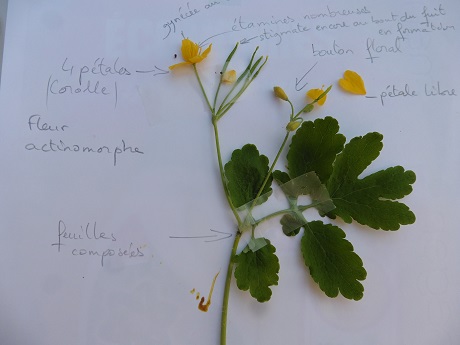 gynécée au
étamines nombreuses
stigmate encore au bout du fruit
en formation
bouton floral
4 pétales
(Corolle)
pétale libre
Fleur
actinomorphe
feuilles
composées